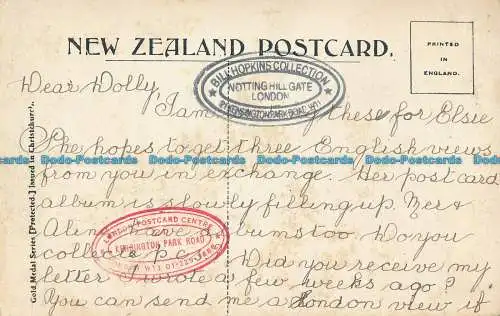 NEW ZEALAND POSTCARD.
PRINTED
IN
ENGLAND.
BILL HOPKINS COLLECTION
NOTTING HILL GATE
LONDON
KENSINGTON PARK ROAD W11
Dear Dolly
I am these for Elsie
She hopes to get three English views
from you in exchange. Her post card
album is slowly filling up. &
Aline have albums too. Do you
collect p.c.
Did you receive my
letter I wrote a few weeks ago?
You can send me a London view if
LONDON POSTCARD CENTRE
KENSINGTON PARK ROAD
W11
Gold Medal Series [Protected.] Issued in Christchurch.
Dodo-Postcards Dodo-Postcards Dodo-Postcards Dodo-Postcards Dodo-Postcards